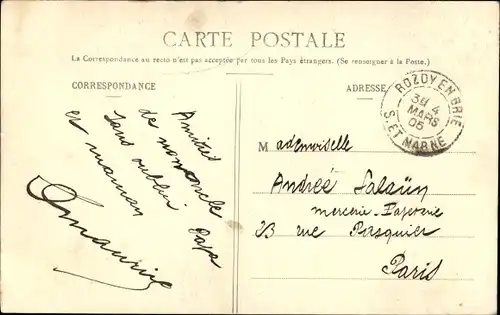 CARTE POSTALE
La Correspondance au recto n'est pas acceptée par tous les Pays étrangers. (Se renseigner à la Poste.)
CORRESPONDANCE
ADRESSE
Amitiés
de mon oncle
sans oublier Papa
et maman
Maurice
ROZOY EN BRIE
4
MARS
05
S. ET MARNE
Mademoiselle
Andrée Salaün
mercerie-Papeterie
23 rue Pasquier
Paris